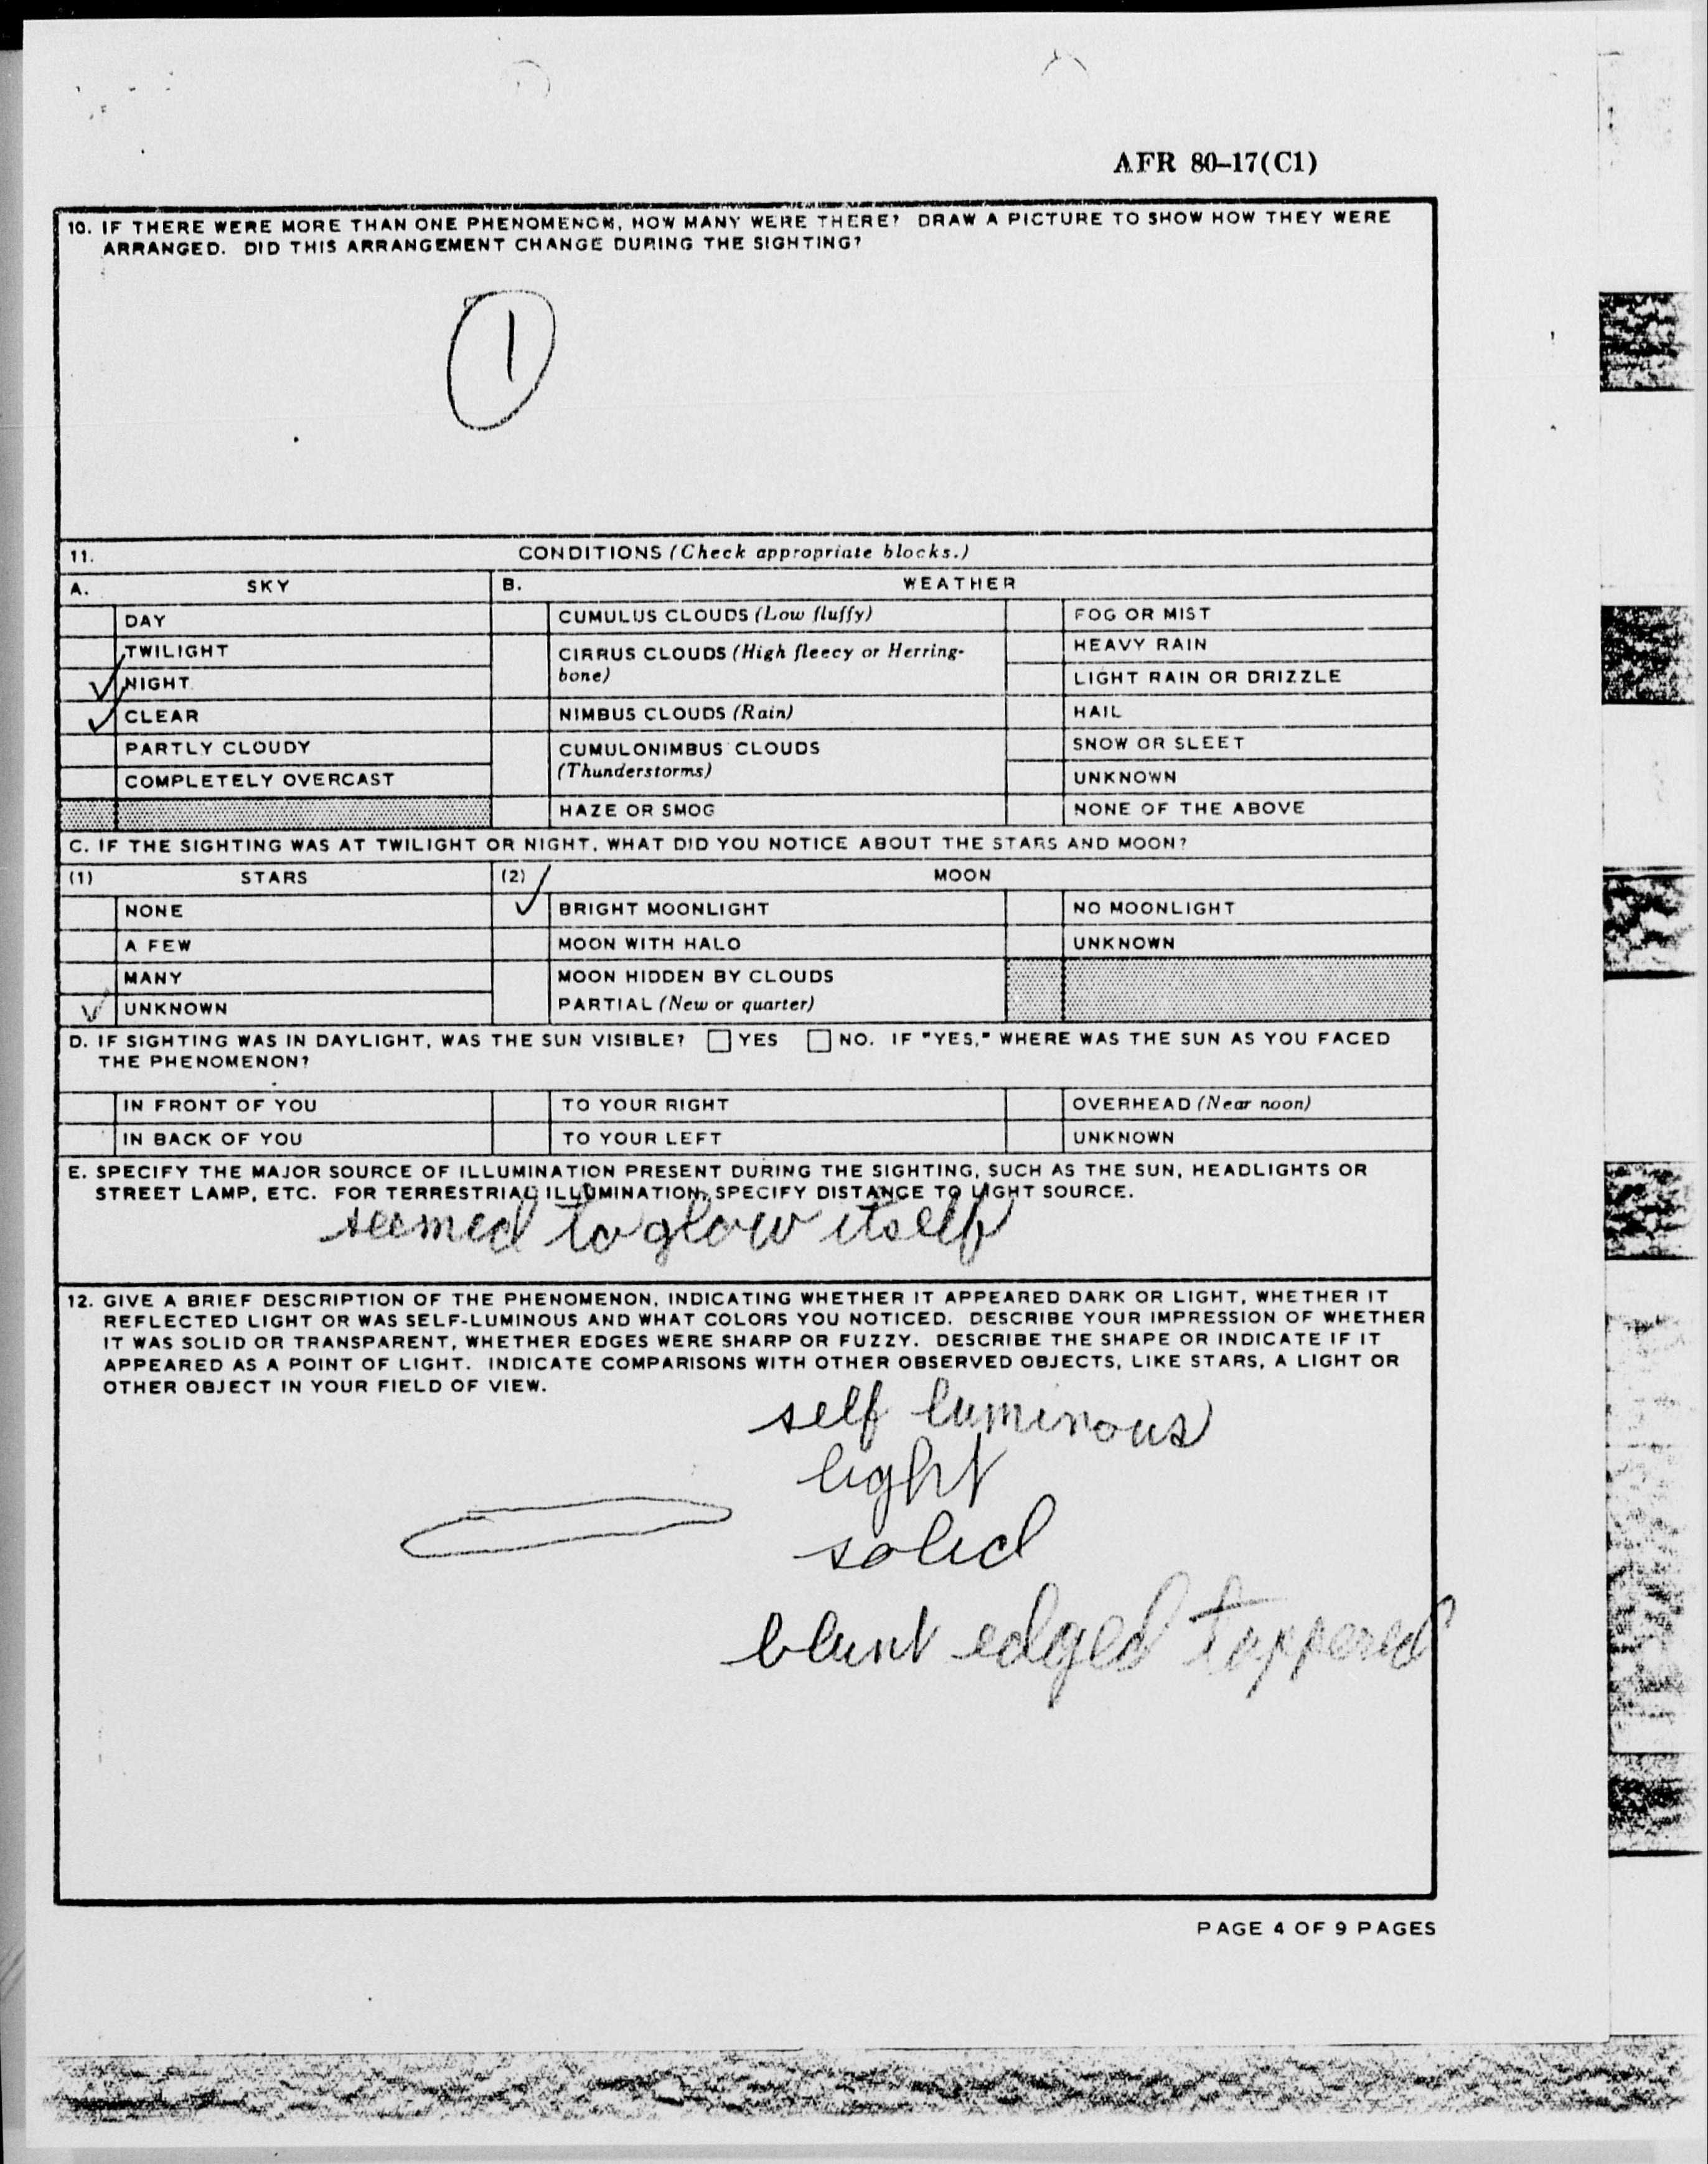 AFR 80–17(C1)
10. IF THERE WERE MORE THAN ONE PHENOMENON, HOW MANY WERE THERE? DRAW A PICTURE TO SHOW HOW THEY WERE
ARRANGED. DID THIS ARRANGEMENT CHANGE DURING THE SIGHTING?
1
11. CONDITIONS (Check appropriate blocks.)
A. SKY B. WEATHER
DAY CUMULUS CLOUDS (Low fluffy) FOG OR MIST
TWILIGHT CIRRUS CLOUDS (High fleecy or Herring- HEAVY RAIN
✓ NIGHT bone) LIGHT RAIN OR DRIZZLE
✓ CLEAR NIMBUS CLOUDS (Rain) HAIL
PARTLY CLOUDY CUMULONIMBUS CLOUDS SNOW OR SLEET
COMPLETELY OVERCAST (Thunderstorms) UNKNOWN
HAZE OR SMOG NONE OF THE ABOVE
C. IF THE SIGHTING WAS AT TWILIGHT OR NIGHT, WHAT DID YOU NOTICE ABOUT THE STARS AND MOON?
(1) STARS (2) MOON
NONE ✓ BRIGHT MOONLIGHT NO MOONLIGHT
A FEW MOON WITH HALO UNKNOWN
MANY MOON HIDDEN BY CLOUDS
✓ UNKNOWN PARTIAL (New or quarter)
D. IF SIGHTING WAS IN DAYLIGHT, WAS THE SUN VISIBLE? ☐ YES ☐ NO. IF "YES," WHERE WAS THE SUN AS YOU FACED
THE PHENOMENON?
IN FRONT OF YOU TO YOUR RIGHT OVERHEAD (Near noon)
IN BACK OF YOU TO YOUR LEFT UNKNOWN
E. SPECIFY THE MAJOR SOURCE OF ILLUMINATION PRESENT DURING THE SIGHTING, SUCH AS THE SUN, HEADLIGHTS OR
STREET LAMP, ETC. FOR TERRESTRIAL ILLUMINATION, SPECIFY DISTANCE TO LIGHT SOURCE.
seemed to glow itself
12. GIVE A BRIEF DESCRIPTION OF THE PHENOMENON, INDICATING WHETHER IT APPEARED DARK OR LIGHT, WHETHER IT
REFLECTED LIGHT OR WAS SELF-LUMINOUS AND WHAT COLORS YOU NOTICED. DESCRIBE YOUR IMPRESSION OF WHETHER
IT WAS SOLID OR TRANSPARENT, WHETHER EDGES WERE SHARP OR FUZZY. DESCRIBE THE SHAPE OR INDICATE IF IT
APPEARED AS A POINT OF LIGHT. INDICATE COMPARISONS WITH OTHER OBSERVED OBJECTS, LIKE STARS, A LIGHT OR
OTHER OBJECT IN YOUR FIELD OF VIEW.
self luminous
light
solid
blunt edged tappered
PAGE 4 OF 9 PAGES